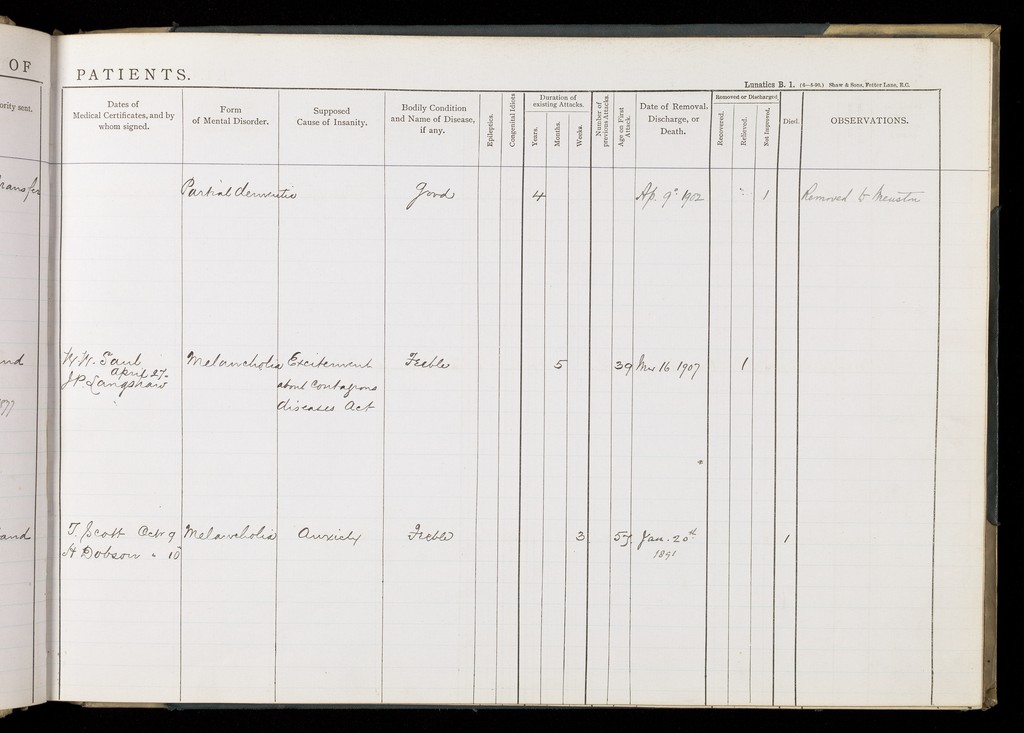 OF
PATIENTS.
Lunatics B. 1. (6—5-90.) Shaw & Sons, Fetter Lane, E.C.
ority sent.
Dates of
Medical Certificates, and by
whom signed.
Form
of Mental Disorder.
Supposed
Cause of Insanity.
Bodily Condition
and Name of Disease,
if any.
Epileptics.
Congenital Idiots
Duration of
existing Attacks.
Years.
Months.
Weeks.
Number of
previous Attacks.
Age on First
Attack.
Date of Removal,
Discharge, or
Death.
Removed or Discharged
Recovered.
Relieved.
Not Improved.
Died.
OBSERVATIONS.
Partial dementia Good 4 Ap. 9th 1902 1 Removed to
and W. W. Saul Melancholia Excitement Feeble 5 39 16 1907 1
April 27
J P. Langshaw about Contagious
diseases Act
and T. Scott Octr 9 Melancholia Anxiety Feeble 3 57 Jan. 20th 1
H Dobson " 10 1891